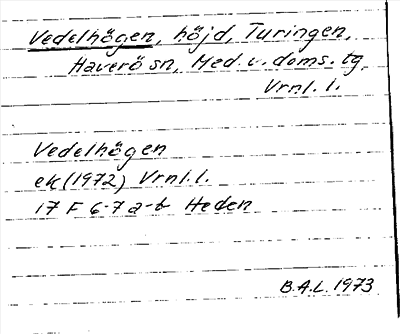 Vedelhögen, höjd, Turingen,
Haverö sn, Med. v. doms. tg
Vrnl. l.
Vedelhögen
ek (1972) Vrnl. l.
17 F 6-7 a-b Heden
B.A.L. 1973